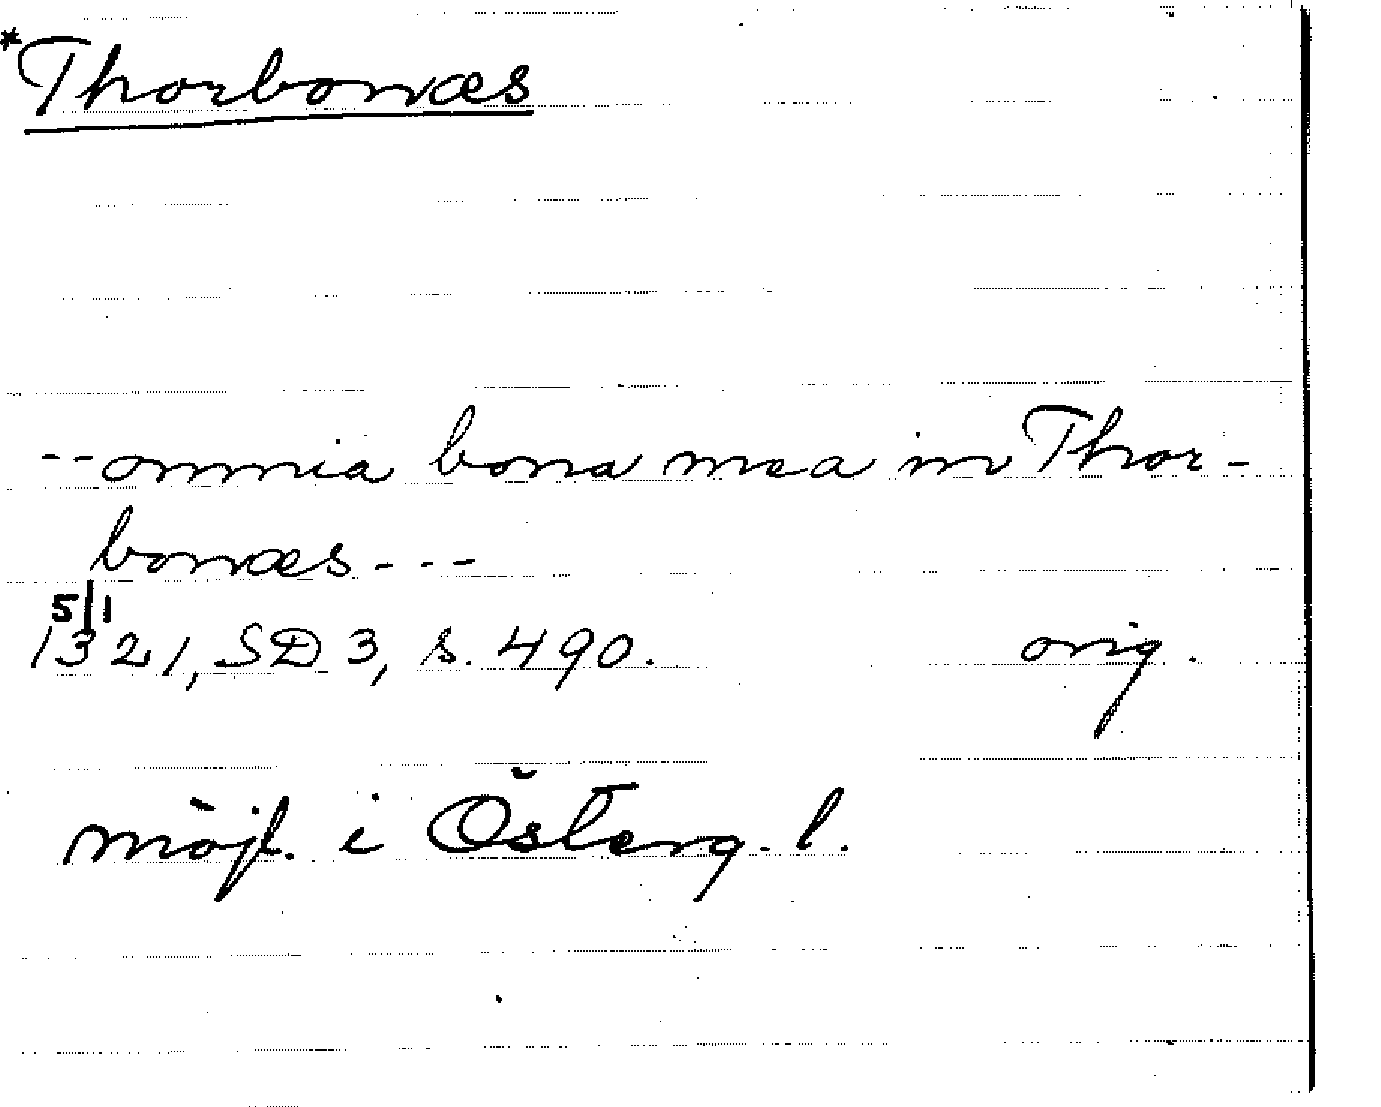 *Thorbonæs
--omnia bona mea in Thor-
bonæs---
5/1
1321, SD 3, s. 490. orig.
möjl. i Österg. l.